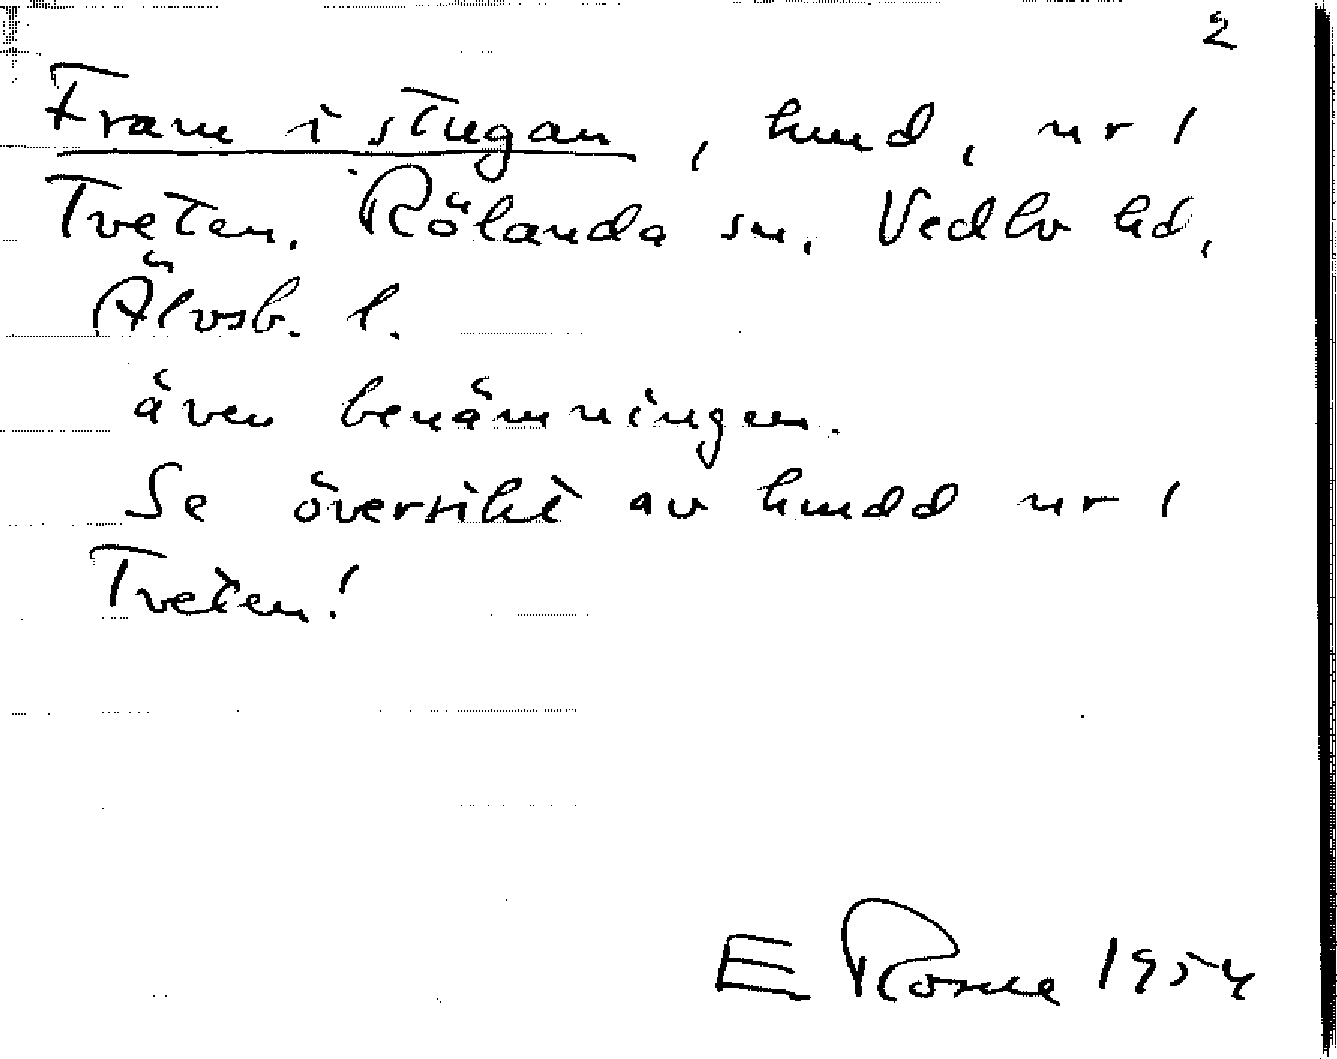 2
Fram i stugan, hmd, nr 1
Tveten. Rölanda sn. Vedbo hd,
Älvsb. l.
även benämningen.
Se översikt av hmdd nr 1
Tveten!
E Rosne 1954